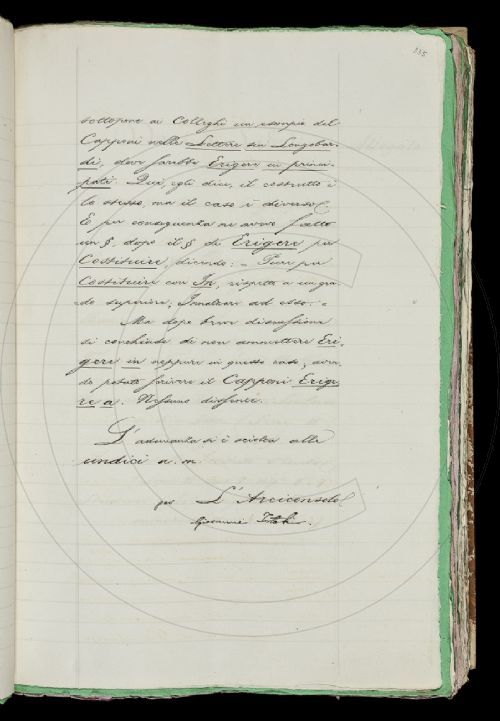 sottoporre ai Colleghi un esempio del
Capponi nelle Lettere sui Longobar-
di, dove sarebbe Erigere in princi-
pati. Qui, egli dice, il costrutto è
lo stesso, ma il caso è diverso.
E per conseguenza ne aveva fatto
un §, dopo il § di Erigere per
Costituire, dicendo: = Pure per
Costituire con In, rispetto a un gra-
do superiore; Innalzare ad esso. =
Ma dopo breve discussione
si conchiude di non ammettere Eri-
gere in neppure in questo caso, aven-
do potuto scrivere il Capponi Erige-
re a. Nessuno dissente.
L'adunanza si è sciolta alle
undici a. m.
per L'Arciconsolo
Giovanni